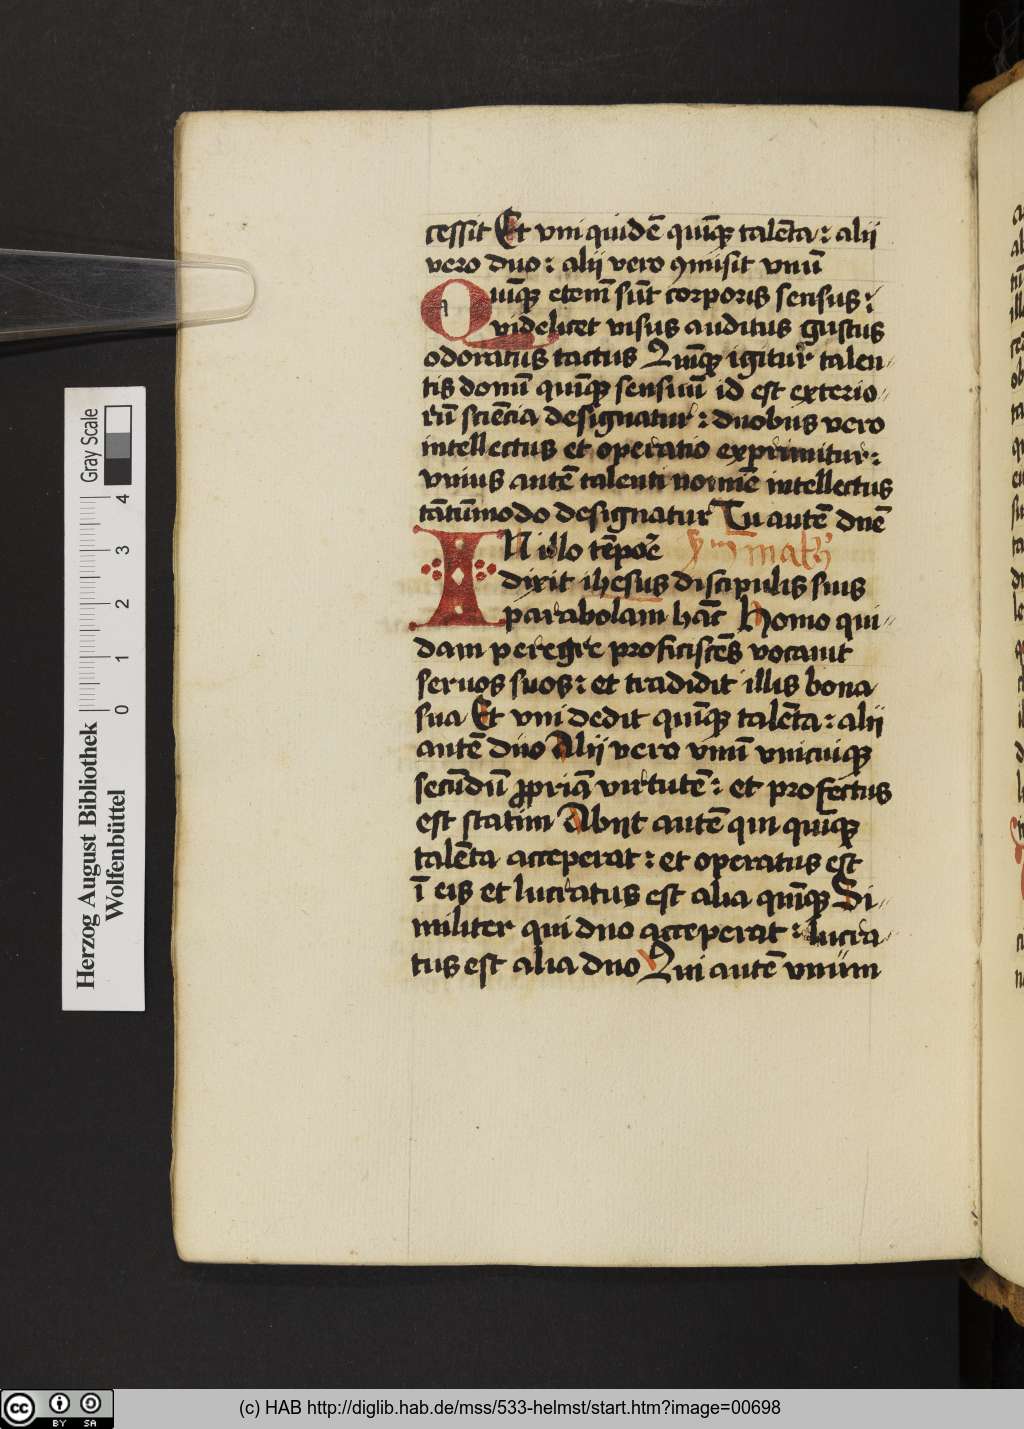 cessit Et vni quidē quīqꝫ talēta : alij
vero duo : alij vero ꝯmisit vnū
Quīqꝫ etem̄ sūt corporis sensus :
videlicet visus auditus gustus
odoratus tactus Quīqꝫ igitur talen⸗
tis donū quīqꝫ sensuū id est exterio⸗
rū sciēcia designatur : duobus vero
intellectus et operatio exprimitur :
vnius autē talenti nomīe intellectus
tātūmodo designatur Tu autē dn̄e
IN illo tēpoꝛē
dixit ihesus discipulis suis
parabolam hāc Homo qui⸗
dam peregre proficiscēs vocauit
seruos suos : et tradidit illis bona
sua Et vni dedit quīqꝫ talēta : alij
autē duo Alij vero vnū vnicuiqꝫ
secūdū ꝓpriā virtutē : et profectus
est statim Abijt autē qui quīqꝫ
talēta acceperat : et operatus est
ī eis et lucratus est alia quīqꝫ Si⸗
militer qui duo acceperat : lucra⸗
tus est alia duo Qui autē vnum
Herzog August Bibliothek
Wolfenbüttel
Gray Scale
0 1 2 3 4
cc BY SA
(c) HAB http://diglib.hab.de/mss/533-helmst/start.htm?image=00698